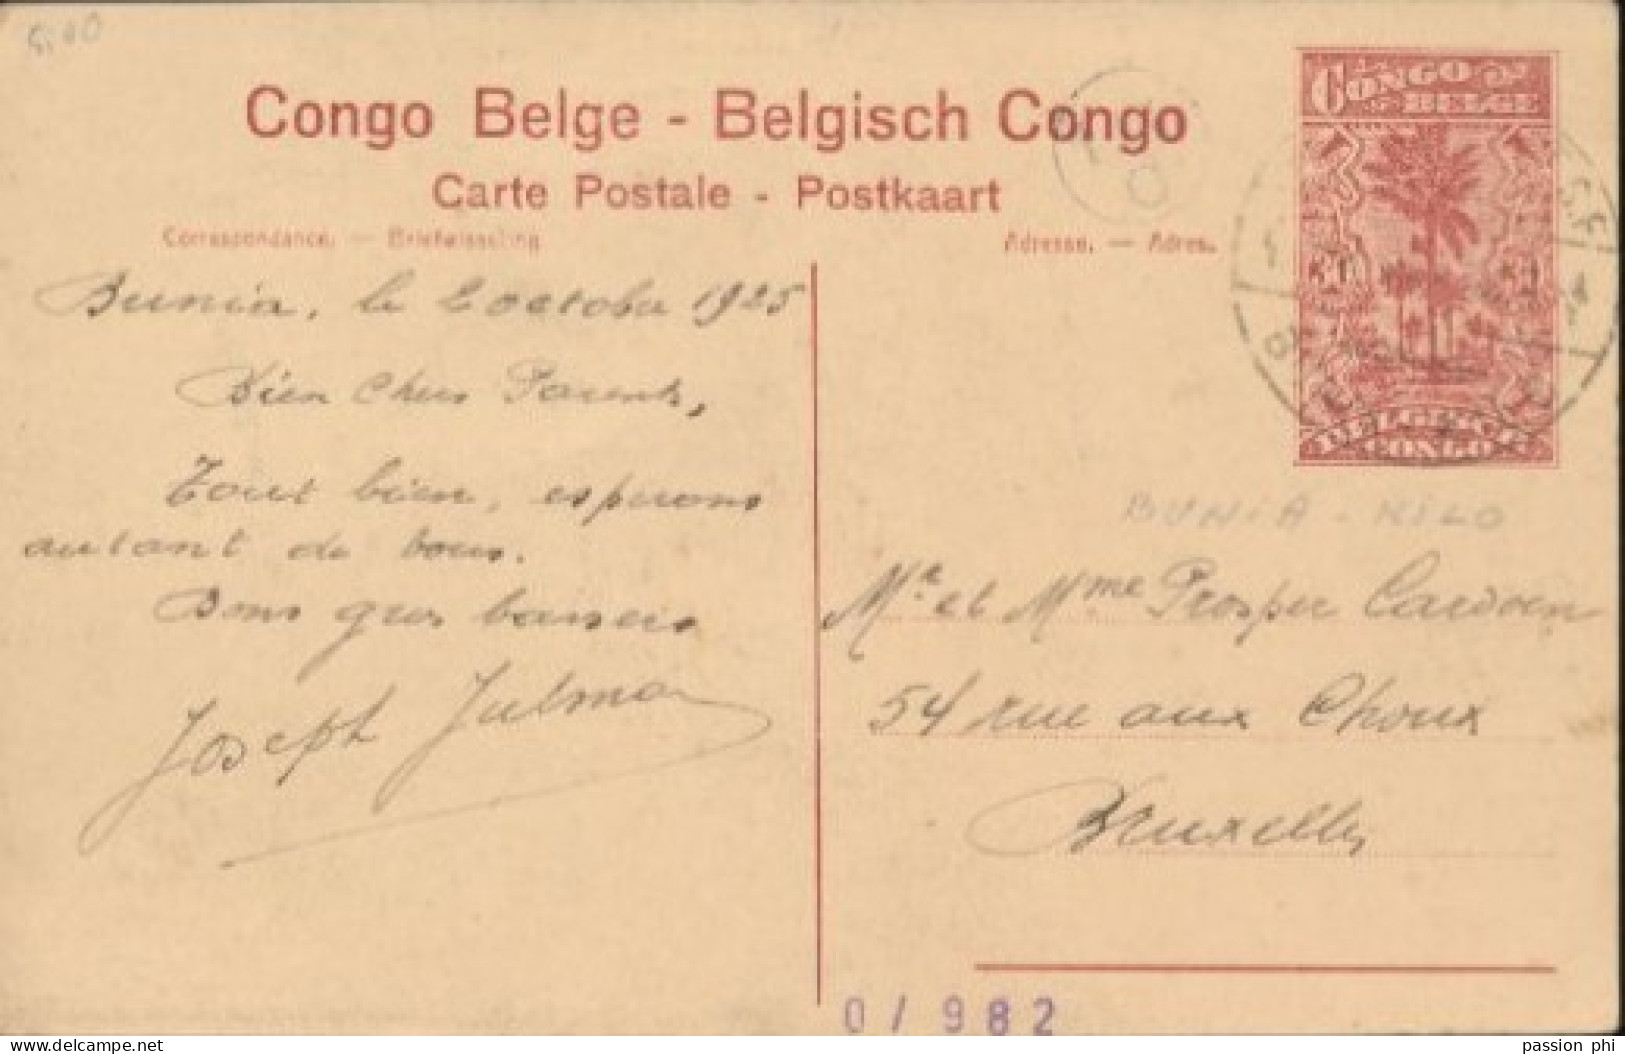 Congo Belge - Belgisch Congo
Carte Postale - Postkaart
Correspondance. — Briefwisseling
Adresse. — Adres.
CONGO
BELGE
BELGISCH
CONGO
Bunia, le 2 octobre 1925
Bien Chers Parents,
Tout bien, espérons
autant de vous.
Bons gros baisers
Joseph
BUNIA - NILO
Mr et Mme Prosper Cardoen
54 rue aux Choux
Bruxelles
0/982
passion phi